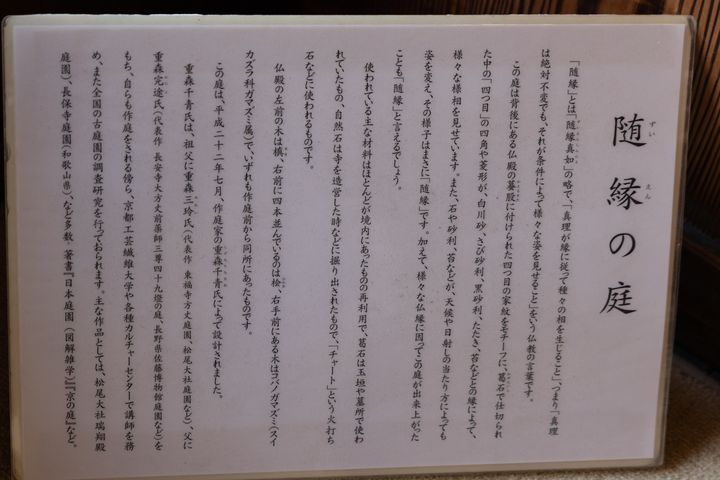 随縁の庭
「随縁」とは「随縁真如」の略で、「真理が縁に従って種々の相を生じること」、つまり「真理
は絶対不変でも、それが条件によって様々な姿を見せること」をいう仏教の言葉です。
この庭は背後にある仏殿の蟇股に付けられた四つ目の家紋をモチーフに、葛石で仕切られ
た中の「四つ目」の四角や菱形が、白川砂、さび砂利、黒砂利、たたき、苔などとの縁によって、
様々な様相を見せています。また、石や砂利、苔などが、天候や日射しの当たり方によっても
姿を変え、その様子はまさに「随縁」です。加えて、様々な仏縁に因ってこの庭が出来上がった
ことも「随縁」と言えるでしょう。
使われている主な材料はほとんどが境内にあったものの再利用で、葛石は玉垣や墓所で使わ
れていたもの、自然石は寺を造営した時などに掘り出されたもので、「チャート」という火打ち
石などに使われるものです。
仏殿の左前の木は槙、右前に四本並んでいるのは桧、右手前にある木はコバノガマズミ(スイ
カズラ科ガマズミ属)で、いずれも作庭前から同所にあったものです。
この庭は、平成二十二年七月、作庭家の重森千青氏によって設計されました。
重森千青氏は、祖父に重森三玲氏(代表作 東福寺方丈庭園、松尾大社庭園など)、父に
重森完途氏(代表作 長安寺大方丈前薬師三尊四十九燈の庭、長野県佐藤博物館庭園など)を
もち、自らも作庭をされる傍ら、京都工芸繊維大学や各種カルチャーセンターで講師を務
め、また全国の古庭園の調査研究を行っておられます。主な作品としては、松尾大社瑞翔殿
庭園)、長保寺庭園(和歌山県)、など多数。著書『日本庭園(図解雑学)』『京の庭』など。